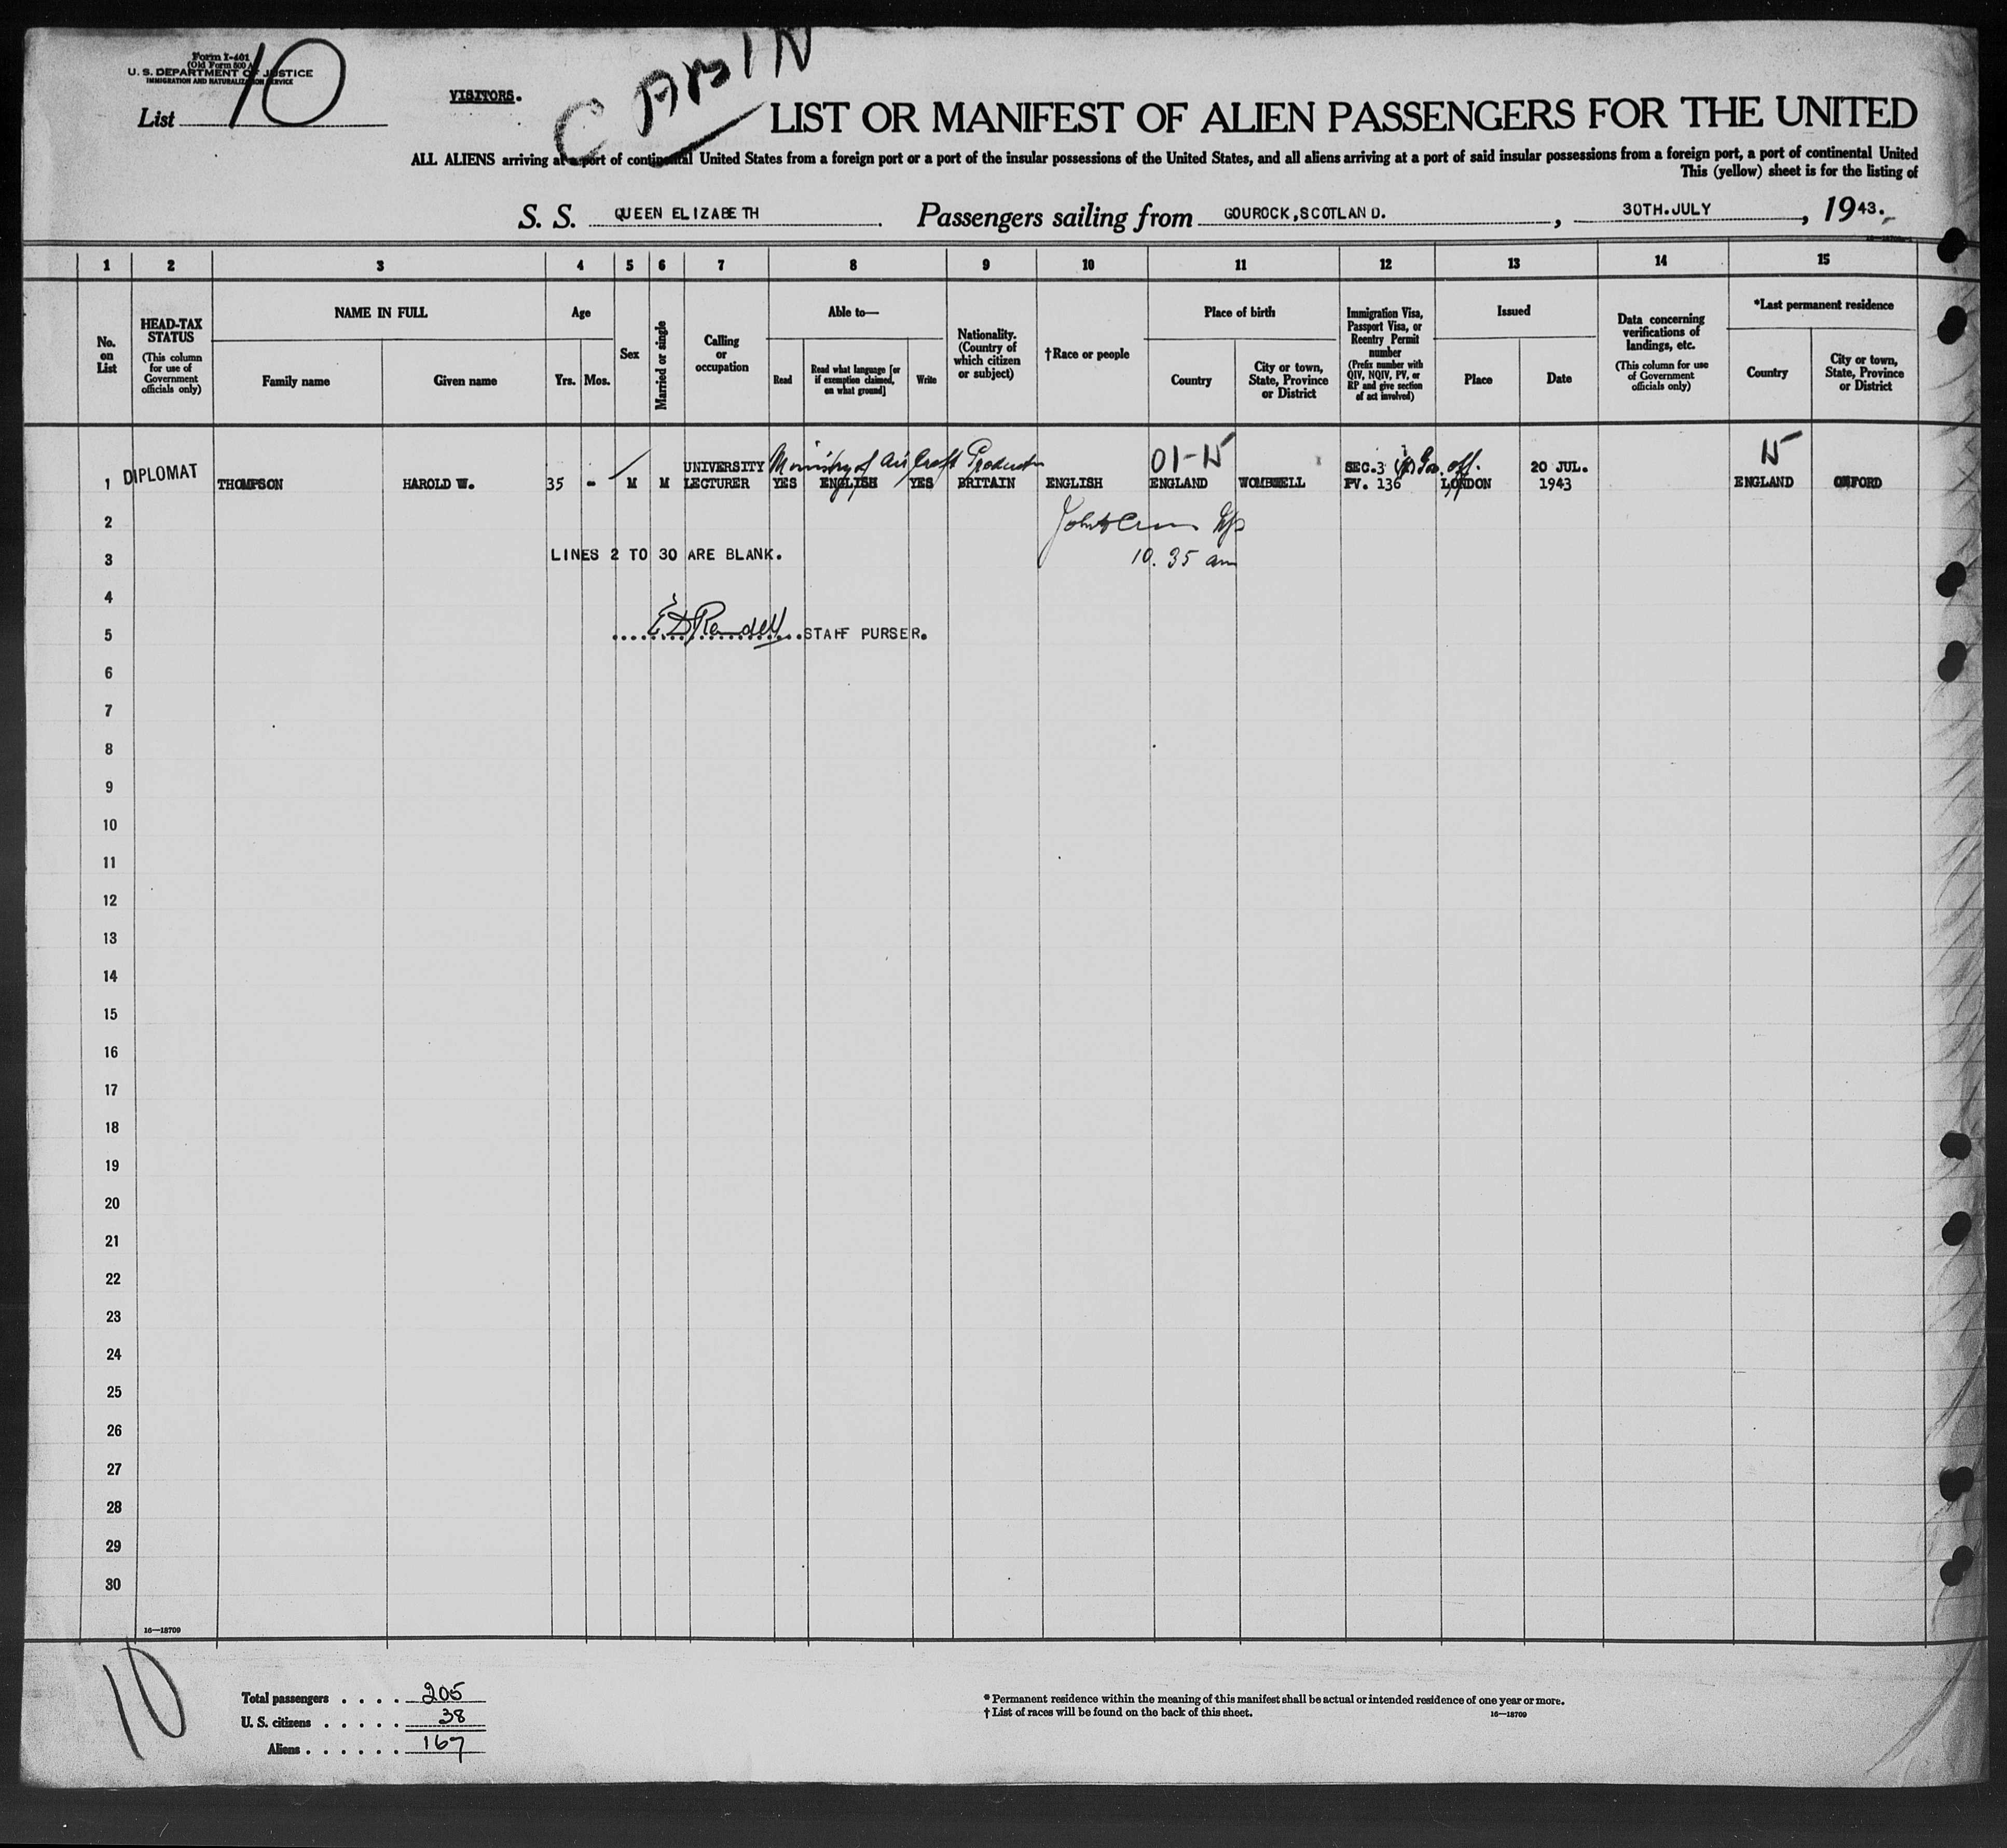 Form I-401
(Old Form 500 A)
U. S. DEPARTMENT OF JUSTICE
IMMIGRATION AND NATURALIZATION SERVICE
List 10
VISITORS.
CABIN
LIST OR MANIFEST OF ALIEN PASSENGERS FOR THE UNITED
ALL ALIENS arriving at a port of continental United States from a foreign port or a port of the insular possessions of the United States, and all aliens arriving at a port of said insular possessions from a foreign port, a port of continental United
This (yellow) sheet is for the listing of
S. S. QUEEN ELIZABETH. Passengers sailing from GOUROCK,SCOTLAND., 30TH.JULY, 1943.
1 2 3 4 5 6 7 8 9 10 11 12 13 14 15
No. on List
HEAD-TAX STATUS
(This column for use of Government officials only)
NAME IN FULL
Family name
Given name
Age
Yrs.
Mos.
Sex
Married or single
Calling or occupation
Able to—
Read
Read what language [or if exemption claimed, on what ground]
Write
Nationality. (Country of which citizen or subject)
†Race or people
Place of birth
Country
City or town, State, Province or District
Immigration Visa, Passport Visa, or Reentry Permit number
(Prefix number with QIV, NQIV, PV, or RP and give section of act involved)
Issued
Place
Date
Data concerning verifications of landings, etc.
(This column for use of Government officials only)
*Last permanent residence
Country
City or town, State, Province or District
01-15 15
UNIVERSITY Ministry of Aircraft Production SEC.3 (1) Gov. off. 20 JUL.
1 DIPLOMAT THOMPSON HAROLD W. 35 - M M LECTURER YES ENGLISH YES BRITAIN ENGLISH ENGLAND WOMBWELL PV. 136 LONDON 1943 ENGLAND OXFORD
2
3 LINES 2 TO 30 ARE BLANK. 10.35 am
4
5 E D Randell STAFF PURSER.
6
7
8
9
10
11
12
13
14
15
16
17
18
19
20
21
22
23
24
25
26
27
28
29
30
16—18709
10
Total passengers . . . . 205
U. S. citizens . . . . . 38
Aliens . . . . . . 167
* Permanent residence within the meaning of this manifest shall be actual or intended residence of one year or more.
† List of races will be found on the back of this sheet.
16—18709